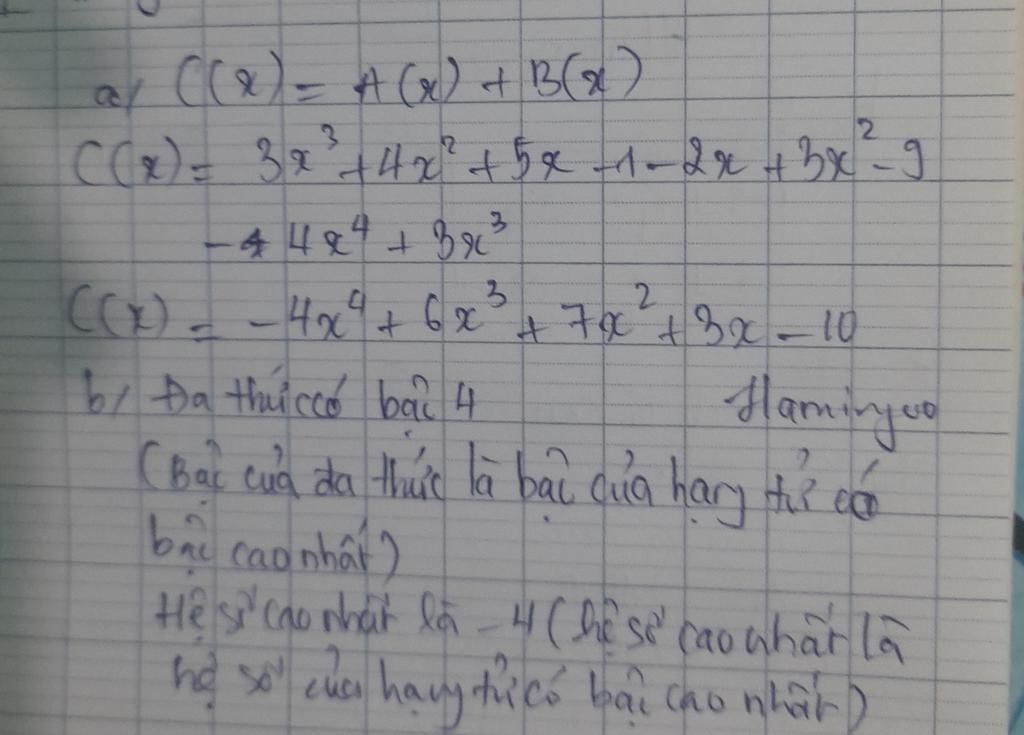 a/ C(x) = A(x) + B(x)
C(x) = 3x³ + 4x² + 5x - 1 - 2x + 3x² - 9
- 4x⁴ + 3x³
C(x) = -4x⁴ + 6x³ + 7x² + 3x - 10
b/ Đa thức có bậc 4 Flamingoo
(Bậc của đa thức là bậc của hạng tử có
bậc cao nhất)
Hệ số cao nhất là -4 (hệ số cao nhất là
hệ số của hạng tử có bậc cao nhất)